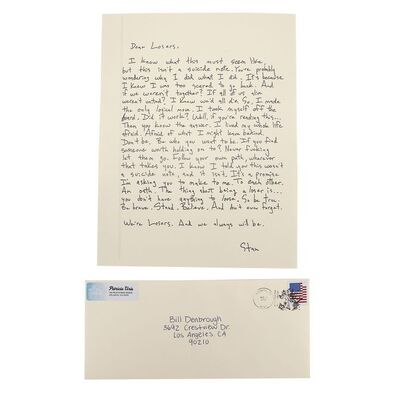 Dear Losers,
I know what this must seem like,
but this isn't a suicide note. You're probably
wondering why I did what I did. It's because
I knew I was too scared to go back. And
if we weren't together? If all of us alive
weren't united? I knew we'd all die. So, I made
the only logical move. I took myself off the
board. Did it work? Well, if you're reading this...
Then you know the answer. I lived my whole life
afraid. Afraid of what I might leave behind.
Don't be. Be who you want to be. If you find
someone worth holding on to? Never fucking
let them go. Follow your own path wherever
that takes you. I know I told you this wasn't
a suicide note, and it isn't. It's a promise
I'm asking you to make to me. To each other.
An oath. The thing about being a loser is...
you don't have anything to lose. So be True.
Be brave. Stand. Believe. And don't ever forget.
We're Losers. And we always will be.
Stan
Patricia Uris
Bill Denbrough
3692 Crestview Dr.
Los Angeles, CA
90210